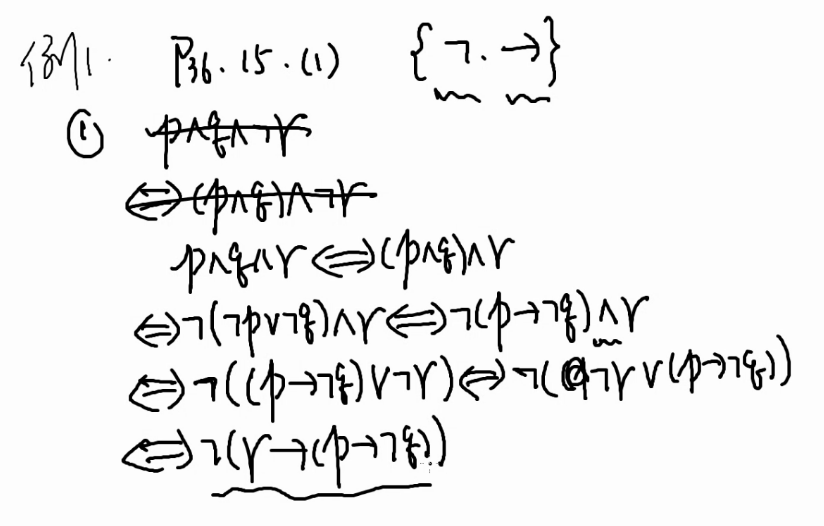 例1. P36.15.(1) {¬.→}
① p∧q∧¬r
⇔(p∧q)∧¬r
p∧q∧r⇔(p∧q)∧r
⇔¬(¬p∨¬q)∧r⇔¬(p→¬q)∧r
⇔¬((p→¬q)∨¬r)⇔¬(¬r∨(p→¬q))
⇔¬(r→(p→¬q))